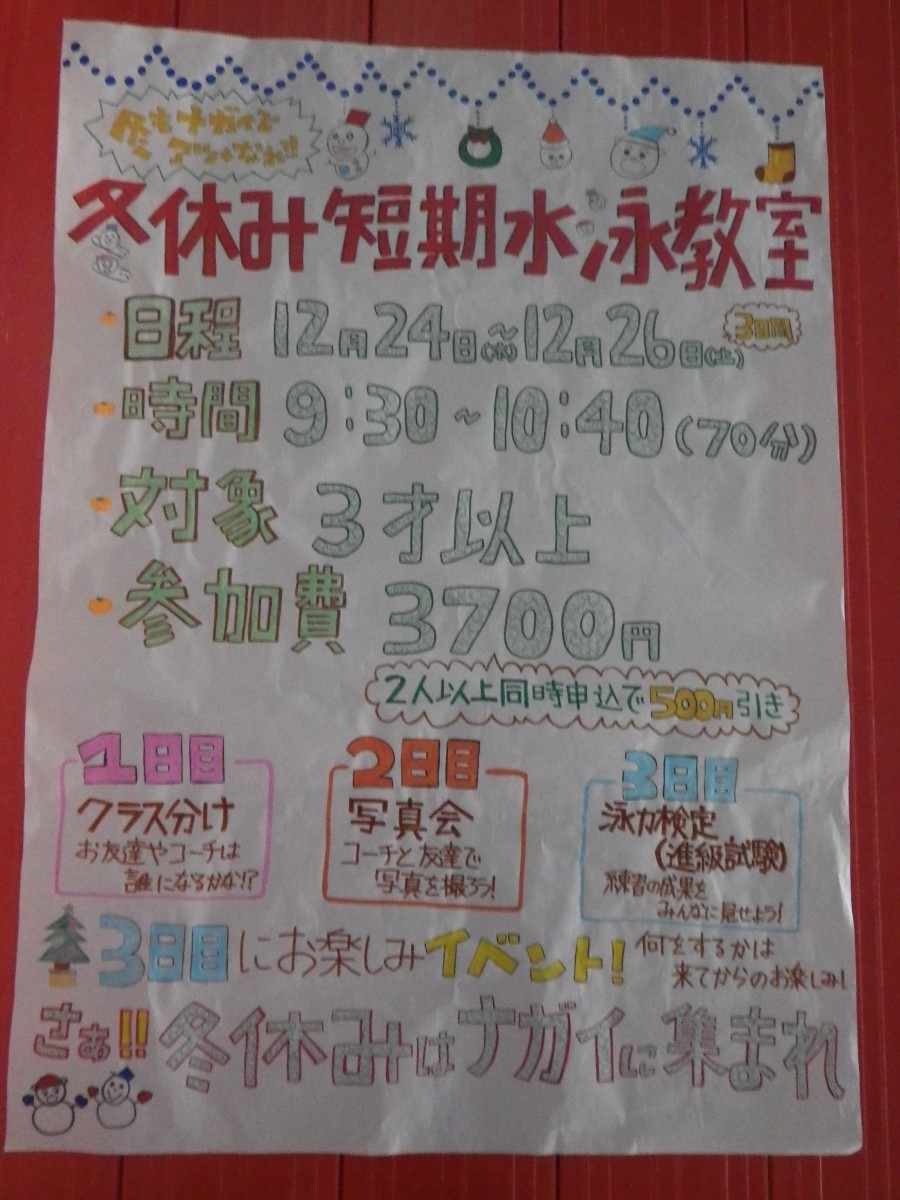 冬もナガイで
アツくなれ!!
冬休み短期水泳教室
・日程 12月24日(木)~12月26日(土) 3日間
・時間 9:30~10:40(70分)
・対象 3才以上
・参加費 3700円
2人以上同時申込で500円引き
1日目
クラス分け
お友達やコーチは
誰になるかな!?
2日目
写真会
コーチと友達で
写真を撮ろう!
3日目
泳力検定
(進級試験)
練習の成果を
みんなに見せよう!
3日目にお楽しみイベント! 何をするかは
来てからのお楽しみ!
さぁ!!冬休みはナガイに集まれ